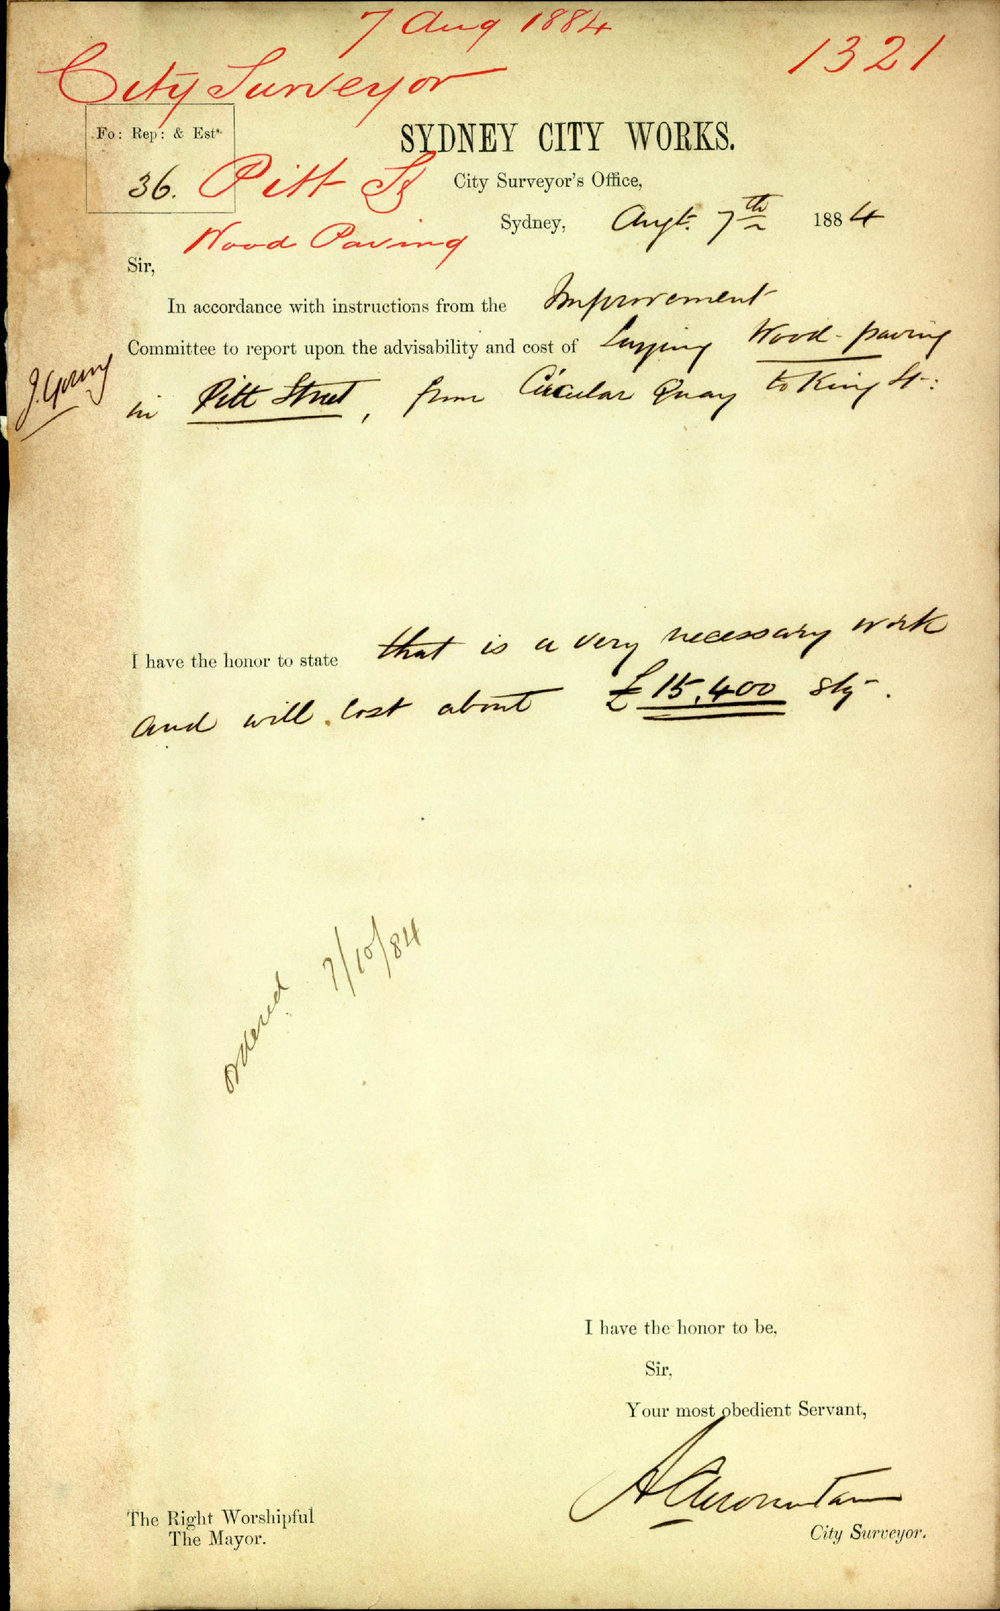 7 Aug 1884
1321
City Surveyor
Fo: Rep: & Est^s.
SYDNEY CITY WORKS.
36. Pitt St
City Surveyor's Office,
Sydney, Augt. 7th 1884
Wood Paving
Sir,
In accordance with instructions from the Improvement
Committee to report upon the advisability and cost of Laying Wood-paving
in Pitt Street, from Circular Quay to King St:
I have the honor to state that is a very necessary work
and will cost about £15,400 stg.
Ordered 7/10/84
I have the honor to be,
Sir,
Your most obedient Servant,
City Surveyor.
The Right Worshipful
The Mayor.